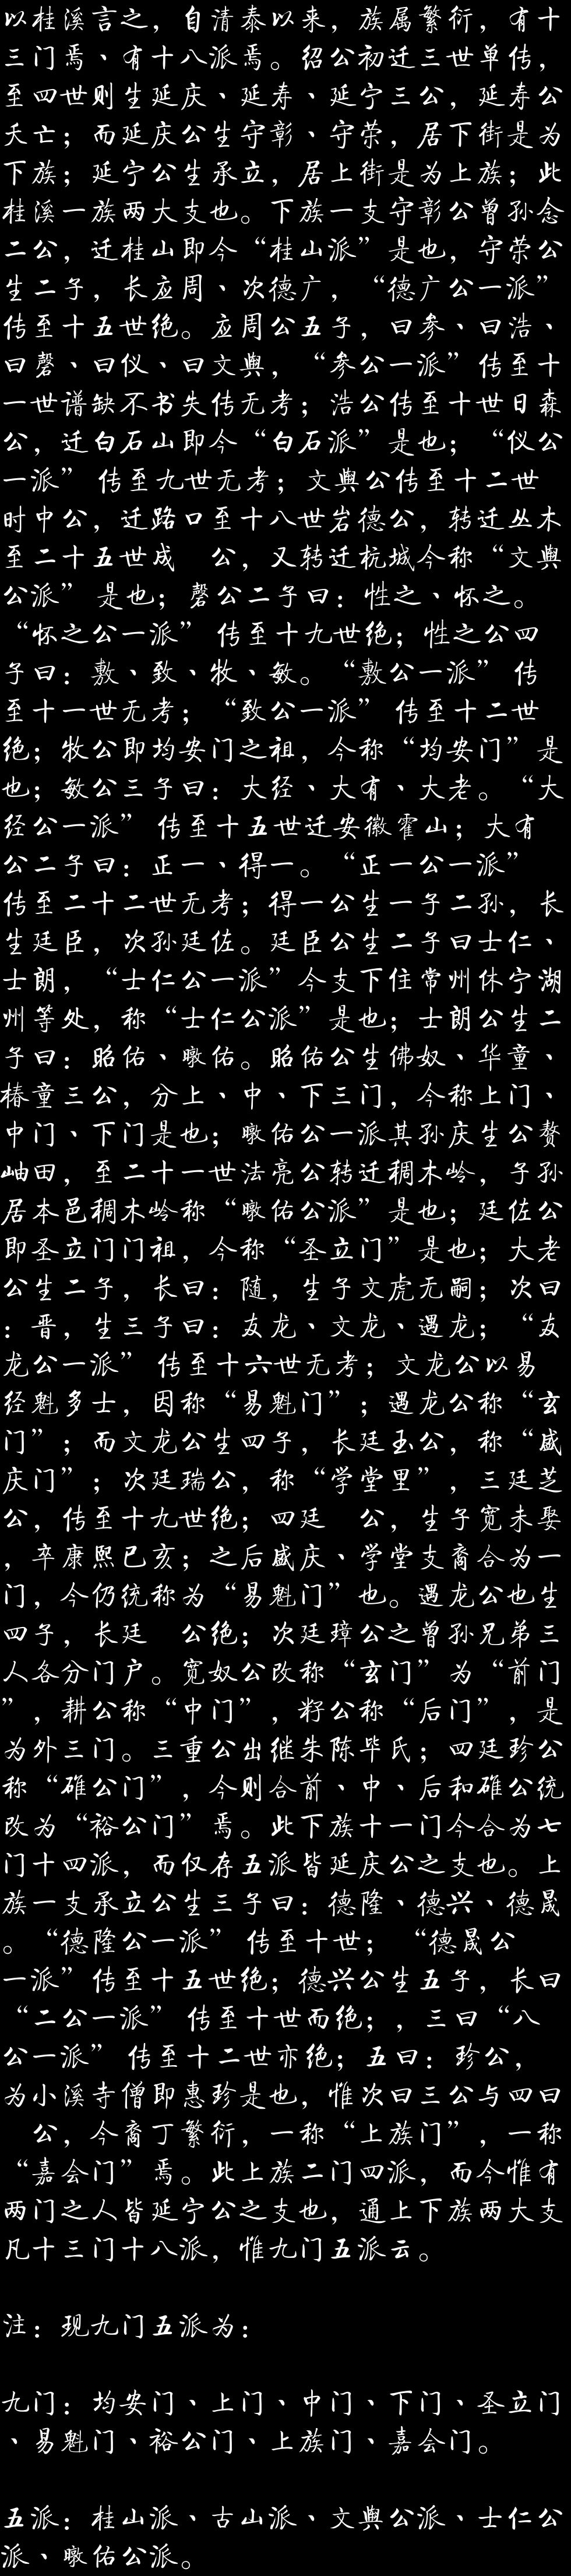 以桂溪言之，自清泰以来，族属繁衍，有十
三门焉、有十八派焉。绍公初迁三世单传，
至四世则生延庆、延寿、延宁三公，延寿公
夭亡；而延庆公生守彰、守荣，居下街是为
下族；延宁公生承立，居上街是为上族；此
桂溪一族两大支也。下族一支守彰公曾孙念
二公，迁桂山即今“桂山派”是也，守荣公
生二子，长应周、次德广，“德广公一派”
传至十五世绝。应周公五子，曰参、曰浩、
曰磬、曰仪、曰文舆，“参公一派”传至十
一世谱缺不书失传无考；浩公传至十世日森
公，迁白石山即今“白石派”是也；“仪公
一派” 传至九世无考；文舆公传至十二世
时中公，迁路口至十八世岩德公，转迁丛木
至二十五世成　公，又转迁杭城今称“文舆
公派”是也；磬公二子曰：性之、怀之。
“怀之公一派” 传至十九世绝；性之公四
子曰：敷、致、牧、敏。“敷公一派” 传
至十一世无考；“致公一派” 传至十二世
绝；牧公即均安门之祖，今称“均安门”是
也；敏公三子曰：大经、大有、大老。“大
经公一派” 传至十五世迁安徽霍山；大有
公二子曰：正一、得一。“正一公一派”
传至二十二世无考；得一公生一子二孙，长
生廷臣，次孙廷佐。廷臣公生二子曰士仁、
士朗，“士仁公一派”今支下住常州休宁湖
州等处，称“士仁公派”是也；士朗公生二
子曰：昭佑、暾佑。昭佑公生佛奴、华童、
椿童三公，分上、中、下三门，今称上门、
中门、下门是也；暾佑公一派其孙庆生公赘
岫田，至二十一世法亮公转迁稠木岭，子孙
居本邑稠木岭称“暾佑公派”是也；廷佐公
即圣立门门祖，今称“圣立门”是也；大老
公生二子，长曰：随，生子文虎无嗣；次曰
：晋，生三子曰：友龙、文龙、遇龙；“友
龙公一派” 传至十六世无考；文龙公以易
经魁多士，因称“易魁门”；遇龙公称“玄
门”；而文龙公生四子，长廷玉公，称“盛
庆门”；次廷瑞公，称“学堂里”，三廷芝
公，传至十九世绝；四廷　公，生子宽未娶
，卒康熙已亥；之后盛庆、学堂支裔合为一
门，今仍统称为“易魁门”也。遇龙公也生
四子，长廷　公绝；次廷璋公之曾孙兄弟三
人各分门户。宽奴公改称“玄门”为“前门
”，耕公称“中门”，籽公称“后门”，是
为外三门。三重公出继朱陈毕氏；四廷珍公
称“碓公门”，今则合前、中、后和碓公统
改为“裕公门”焉。此下族十一门今合为七
门十四派，而仅存五派皆延庆公之支也。上
族一支承立公生三子曰：德隆、德兴、德晟
。“德隆公一派” 传至十世； “德晟公
一派”传至十五世绝；德兴公生五子，长曰
“二公一派” 传至十世而绝；，三曰“八
公一派” 传至十二世亦绝；五曰：珍公，
为小溪寺僧即惠珍是也，惟次曰三公与四曰
　公，今裔丁繁衍，一称“上族门”，一称
“嘉会门”焉。此上族二门四派，而今惟有
两门之人皆延宁公之支也，通上下族两大支
凡十三门十八派，惟九门五派云。
注：现九门五派为：
九门：均安门、上门、中门、下门、圣立门
、易魁门、裕公门、上族门、嘉会门。
五派：桂山派、古山派、文舆公派、士仁公
派、暾佑公派。